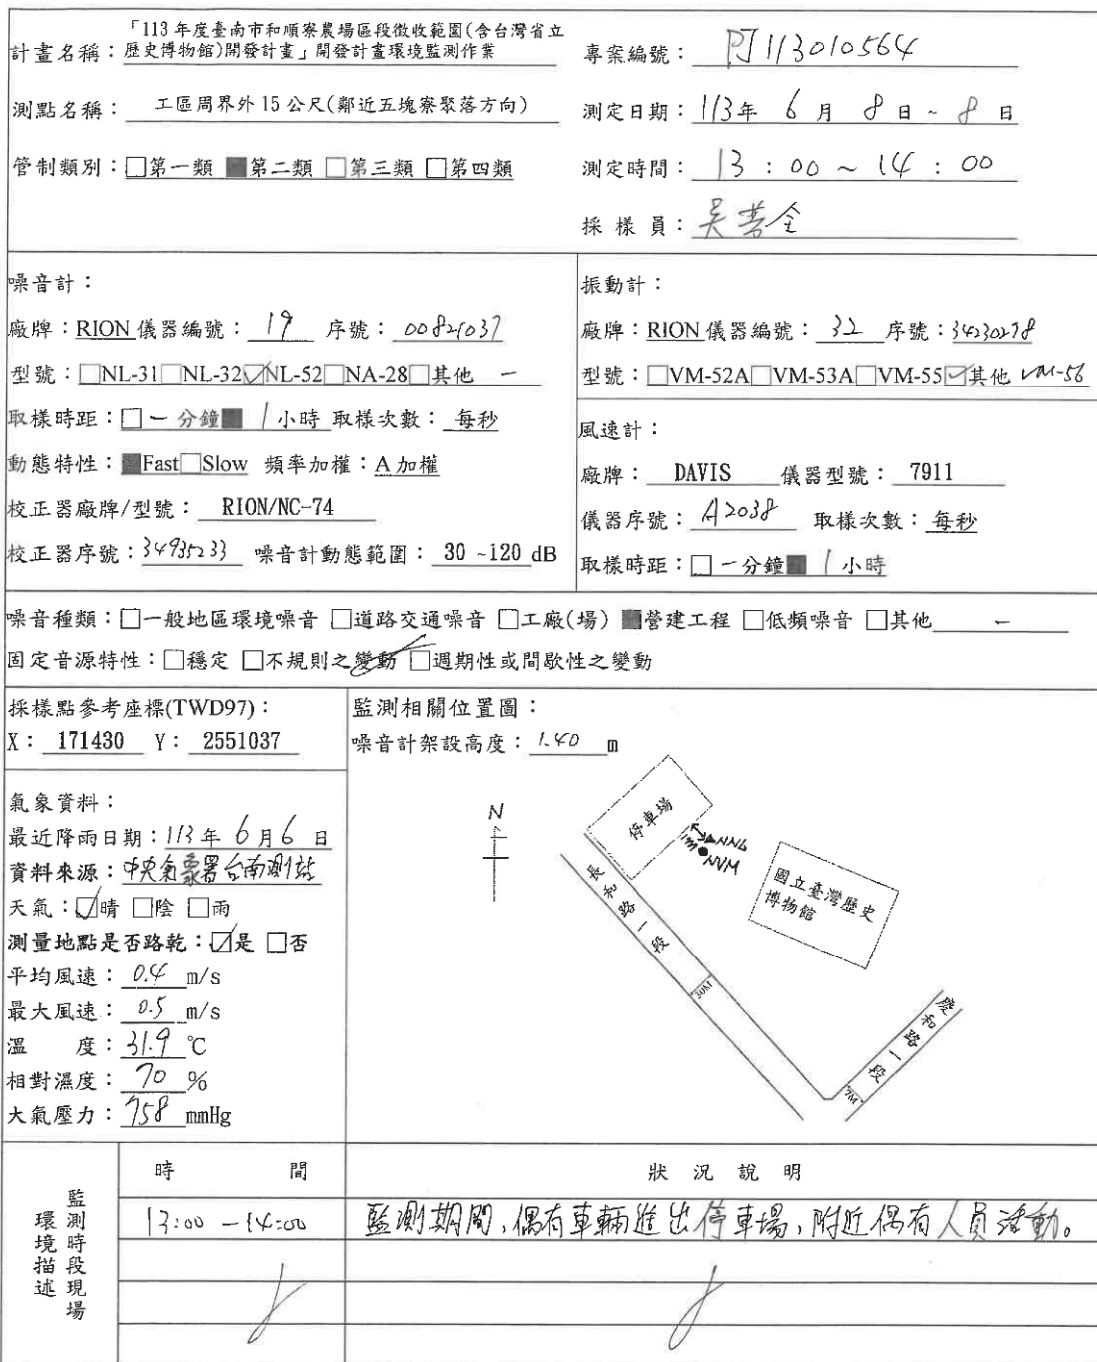 「113 年度臺南市和順寮農場區段徵收範圍(含台灣省立
計畫名稱：歷史博物館)開發計畫」開發計畫環境監測作業
專案編號：PJ113010564
測點名稱：工區周界外 15 公尺(鄰近五塊寮聚落方向)
測定日期：113年 6 月 8 日 ~ 8 日
管制類別：□第一類 ■第二類 □第三類 □第四類
測定時間：13：00 ~ 14：00
採 樣 員：吳 全
噪音計：
廠牌：RION 儀器編號：19 序號：00821037
型號：□NL-31□NL-32☑NL-52□NA-28□其他 -
取樣時距：□一分鐘■ 1 小時 取樣次數：每秒
動態特性：■Fast□Slow 頻率加權：A 加權
校正器廠牌/型號：RION/NC-74
校正器序號：34935233 噪音計動態範圍：30 ~120 dB
振動計：
廠牌：RION 儀器編號：32 序號：34230278
型號：□VM-52A□VM-53A□VM-55☑其他 VM-56
風速計：
廠牌：DAVIS 儀器型號：7911
儀器序號：A2038 取樣次數：每秒
取樣時距：□一分鐘■ 1 小時
噪音種類：□一般地區環境噪音 □道路交通噪音 □工廠(場) ■營建工程 □低頻噪音 □其他 -
固定音源特性：□穩定 □不規則之變動 □週期性或間歇性之變動
採樣點參考座標(TWD97)：
X：171430 Y：2551037
氣象資料：
最近降雨日期：113年 6月6 日
資料來源：中央氣象署台南測站
天氣：☑晴 □陰 □雨
測量地點是否路乾：☑是 □否
平均風速：0.4 m/s
最大風速：0.5 m/s
溫 度：31.9 ℃
相對濕度：70 %
大氣壓力：758 mmHg
監測相關位置圖：
噪音計架設高度：1.40 m
N
停車場
1M
NNL
NVM
國立臺灣歷史
博物館
長和路一段
30M
慶和路一段
7M
監測時段現場
環境描述
時 間
狀 況 說 明
13:00 -14:00
監測期間,偶有車輛進出停車場,附近偶有人員活動。